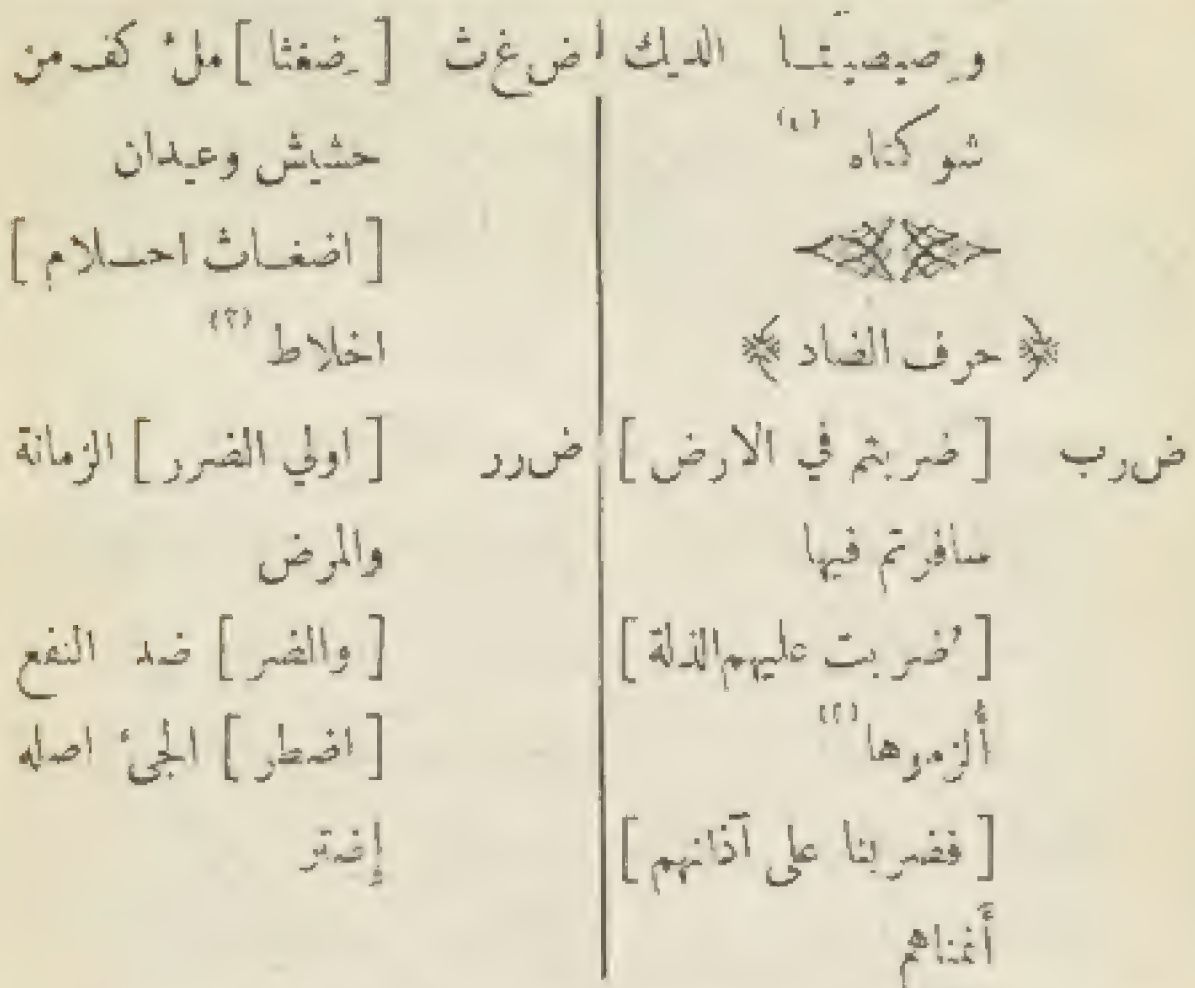 وصيصيتا الديك
شوكتاه (١)
حرف الضاد
ض ر ب [ ضربتم في الارض ]
سافرتم فيها
[ ضُربت عليهم الذلة ]
ألزموها (٢)
[ فضربنا على آذانهم ]
أنمناهم
ض غ ث [ ضِغثا ] ملء كف من
حشيش وعيدان
[ اضغاث احلام ]
اخلاط (٣)
ض ر ر [ اولي الضرر ] الزمانة
والمرض
[ والضر ] ضد النفع
[ اضطر ] الجئ اصله
إضتر